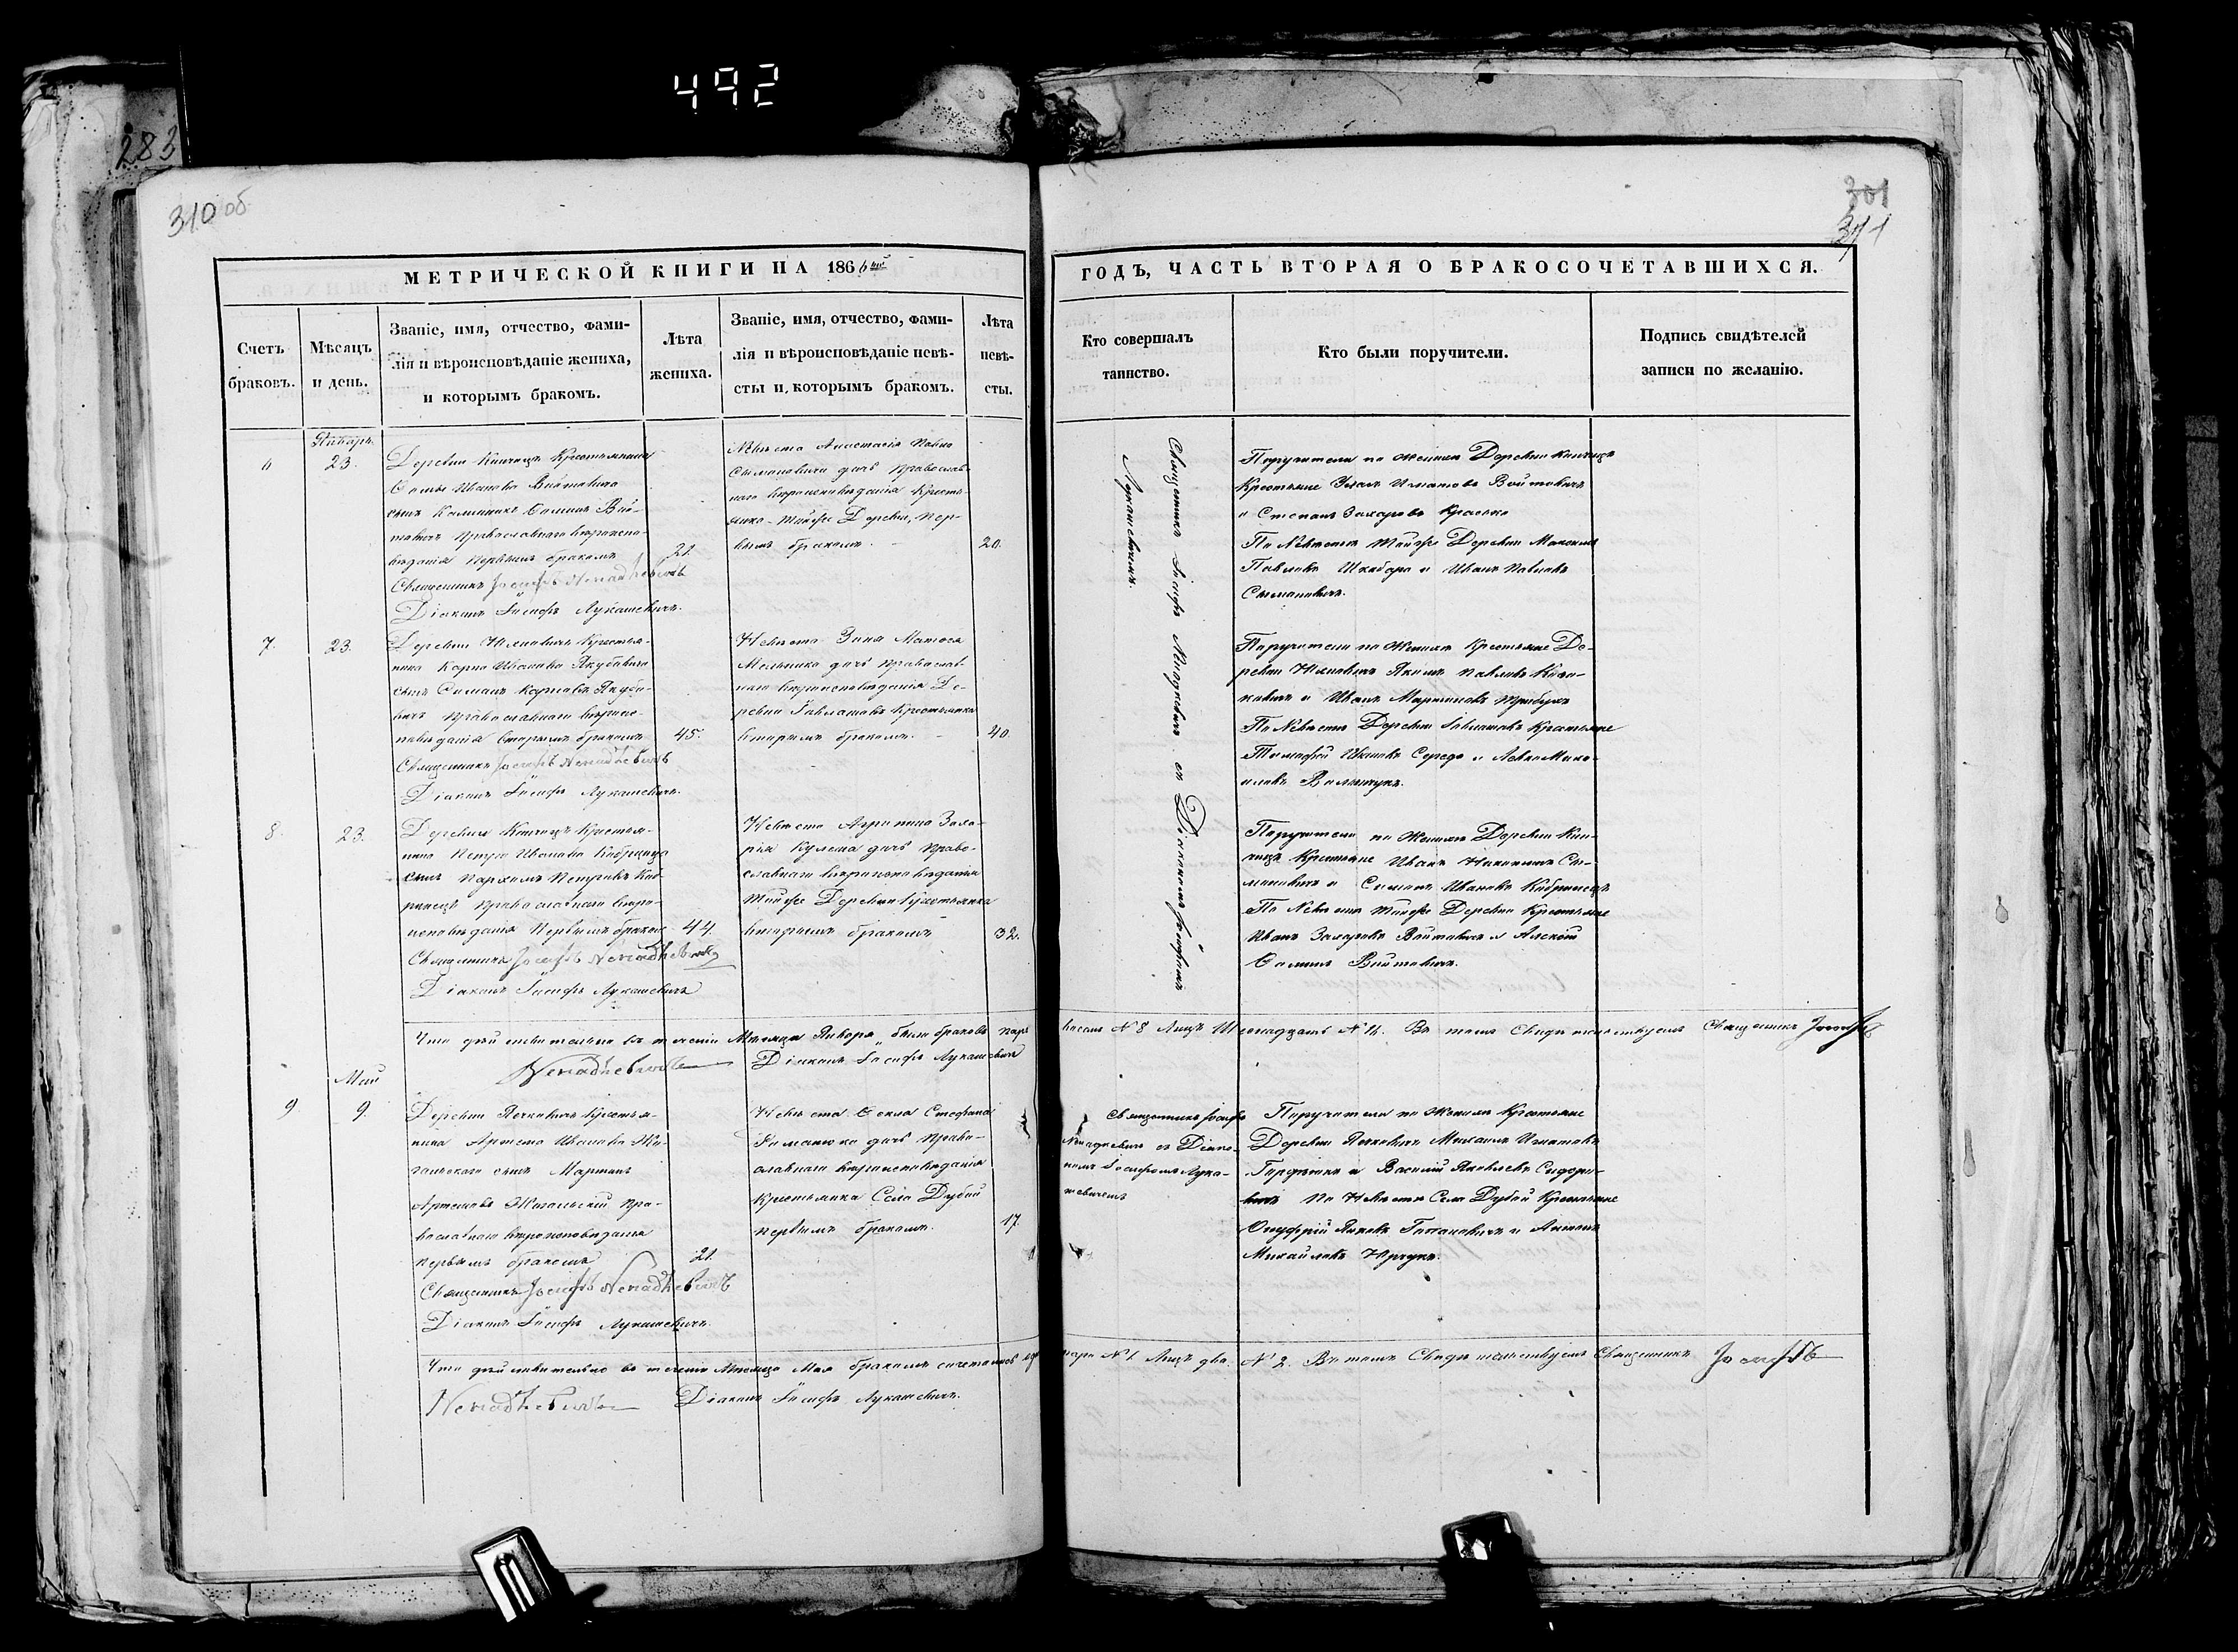 492
283
310 об
301
311
МЕТРИЧЕСКОЙ КНИГИ НА 1866й
ГОДЪ, ЧАСТЬ ВТОРАЯ О БРАКОСОЧЕТАВШИХСЯ.
Счетъ браковъ.
Мѣсяцъ и день.
Званіе, имя, отчество, фами-
лія и вѣроисповѣданіе жениха,
и которымъ бракомъ.
Лѣта
жениха.
Званіе, имя, отчество, фами-
лія и вѣроисповѣданіе невѣ-
сты и, которымъ бракомъ.
Лѣта
невѣ-
сты.
Кто совершалъ
таинство.
Кто были поручители.
Подпись свидѣтелей
записи по желанію.
Январь
6
23.
Деревни Кнчицъ Крестьянина
Ѳомы Иванова Войтовича
сынъ Калинникъ Ѳоминъ Вой-
товичъ Православнаго вѣроиспо-
вѣданія Первымъ бракомъ
21.
Священникъ Іосифъ Ненадкевичъ
Діаконъ Іосифъ Лукашевичъ.
Невѣста Анастасія Павла
Сымановича дочь Православ-
наго вѣроисповѣданія Кресть-
янка той же Деревни, Пер-
вымъ бракомъ.
20.
Священникъ Іосифъ Ненадкевичъ съ Діакономъ Іосифомъ
Лукашевичемъ.
Поручители по Женихѣ Деревни
Крестьяне Игнатовъ Войтовичъ
и Степанъ Захаровъ
По Невѣстѣ той же Деревни Максимъ
Павловъ Шкабара и Иванъ Павловъ
Сымановичъ.
7.
23.
Деревни Крестья-
нина Карпа Иванова Якубовича
сынъ Симонъ Карповъ Якубо-
вичъ Православнаго вѣроис-
повѣданія Вторымъ бракомъ
45.
Священникъ Іосифъ Ненадкевичъ
Діаконъ Іосифъ Лукашевичъ.
Невѣста Зиня Матвея
Мельника дочь Православ-
наго вѣроисповѣданія Де-
ревни Крестьянка
вторымъ бракомъ.
40.
Поручители по Женихѣ Крестьяне Де-
ревни Якимъ Павловъ
и Иванъ Мартиновъ
По Невѣстѣ Деревни Крестьяне
Тимофей Ивановъ Середа и
8.
23.
Деревни Крестья-
нина Петра Иванова Кобринца
сынъ Пархомъ Петровъ Коб-
ринецъ Православнаго вѣро-
исповѣданія Первымъ бракомъ
44.
Священникъ Іосифъ Ненадкевичъ
Діаконъ Іосифъ Лукашевичъ
Невѣста Агрипина Заха-
рія Кулеша дочь Право-
славнаго вѣроисповѣданія
той же Деревни Крестьянка
вторымъ бракомъ
32.
Поручители по Женихѣ Деревни
Крестьяне Иванъ Сы-
мановичъ и Симонъ Ивановъ Кобринецъ
По Невѣстѣ той же Деревни Крестьяне
Иванъ Захаровъ Войтовичъ и Алексѣй
Ѳоминъ Войтовичъ.
Что дѣйствительно въ теченіи Мѣсяца Января было браковъ паръ восемь № 8 Лицъ Шеснадцать № 16. Въ томъ Свидѣтельствуемъ Священникъ Іосифъ
Ненадкевичъ Діаконъ Іосифъ Лукашевичъ
Май
9
9.
Деревни Печкович Крестья-
нина Артема Иванова Жи-
гальскаго сынъ Мартинъ
Артемовъ Жигальскій Пра-
вославнаго вѣроисповѣданія
первымъ бракомъ
21.
Священникъ Іосифъ Ненадкевичъ
Діаконъ Іосифъ Лукашевичъ.
Невѣста Ѳекла Стефана
Романюка дочь Право-
славнаго вѣроисповѣданія
Крестьянка Села Дубой
первымъ бракомъ.
17.
Священникъ Іосифъ
Ненадкевичъ съ Діако-
номъ Іосифомъ Лука-
шевичемъ
Поручители по Женихѣ Крестьяне
Деревни Михаилъ Игнатовъ
и Василій Яковлевъ Сидоро-
вичъ По Невѣстѣ Села Дубой Крестьяне
Онуфрій Яковъ и Антонъ
Михайловъ
Что дѣйствительно въ теченіи Мѣсяца Мая бракомъ сочеталась одна пара № 1 Лицъ два № 2. Въ томъ Свидѣтельствуемъ Священникъ Іосифъ
Ненадкевичъ Діаконъ Іосифъ Лукашевичъ.